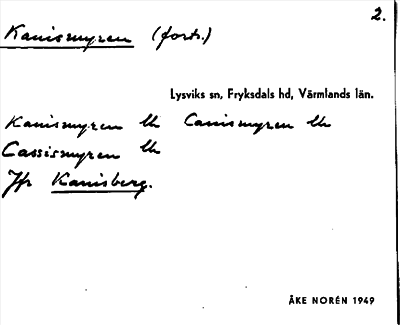 2.
Kanismyren (forts.)
Lysviks sn, Fryksdals hd, Värmlands län.
Kanismyren Uh Canismyren Uh
Cassismyren Uh
Jfr Kanisberg.
ÅKE NORÉN 1949